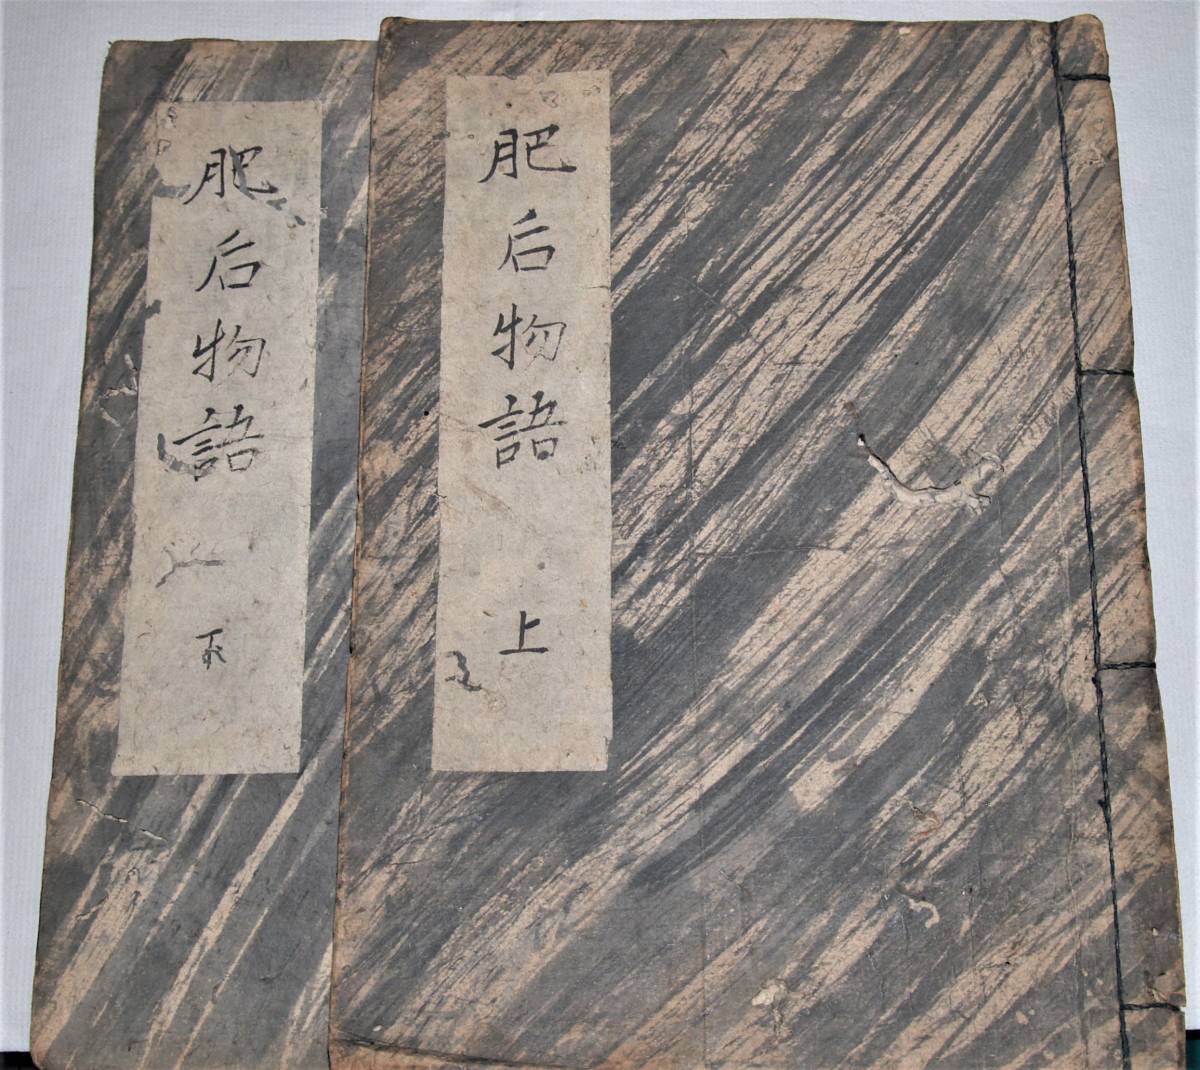 肥后物語 上
肥后物語 下